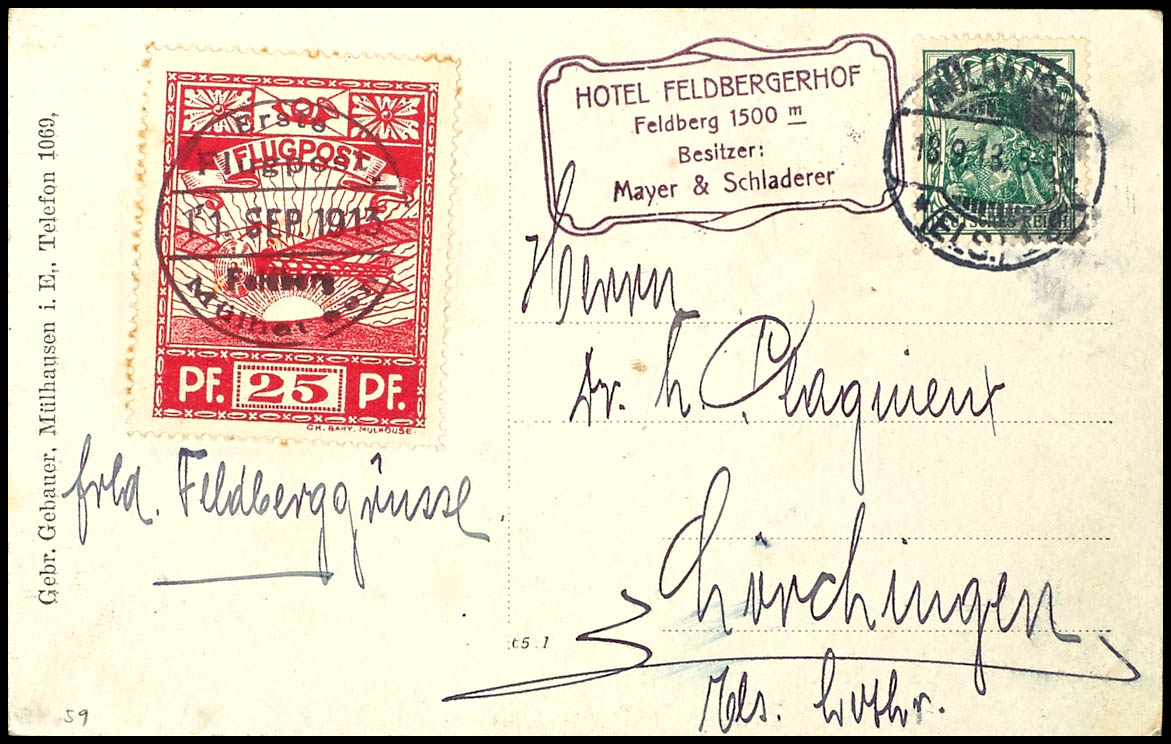 Gebr. Gebauer, Mülhausen i. E., Telefon 1069,
FLUGPOST
PF. 25 PF.
CH. BAHY. MULHOUSE.
Erste
Flugpost
11. SEP. 1913
Feldberg
Mülhausen
HOTEL FELDBERGERHOF
Feldberg 1500 m
Besitzer:
Mayer & Schladerer
(ELS.)
Herrn
Dr. H. Plagnieux
Lörchingen
Els. Lothr.
frdl. Feldberggrüsse
t5.1
59